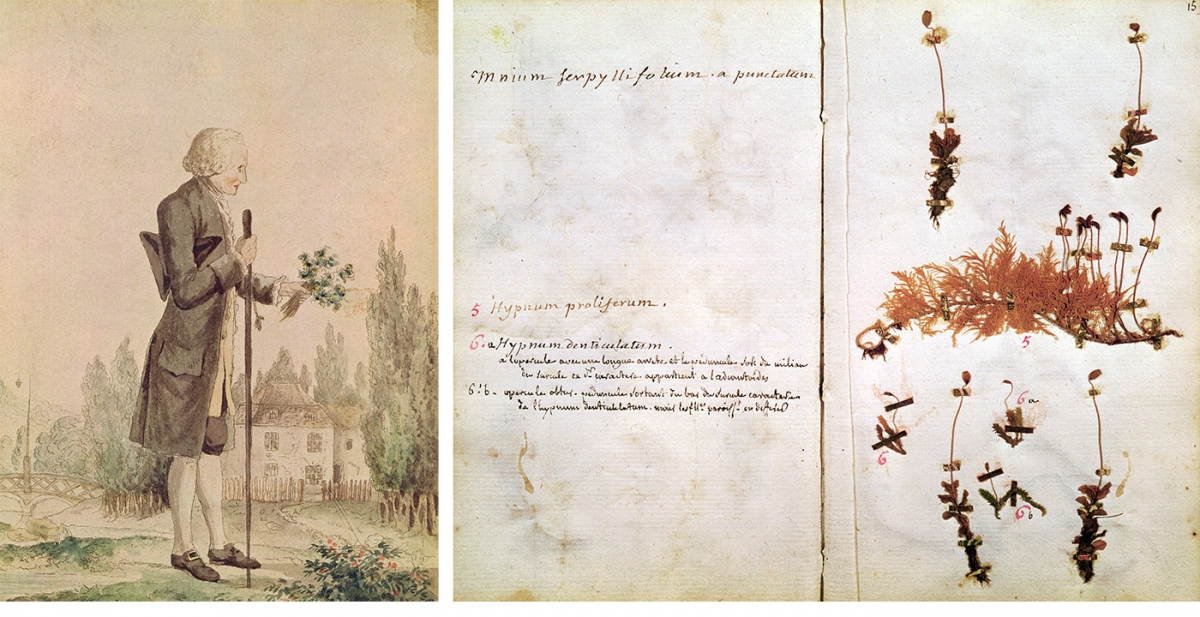 15
Mnium serpyllifolium. a punctatum
5 Hypnum proliferum.
6. a Hypnum denticulatum.
a l'opercule avec une longue arrete et le peduncule sort du milieu
du surcule ce dr caractere appartient a l'adiantoides
6. b. opercule obtus. peduncule sortant du bas du surcule caracteres
de l'hypnum denticulatum. mais les
5
6 a
6
6 b